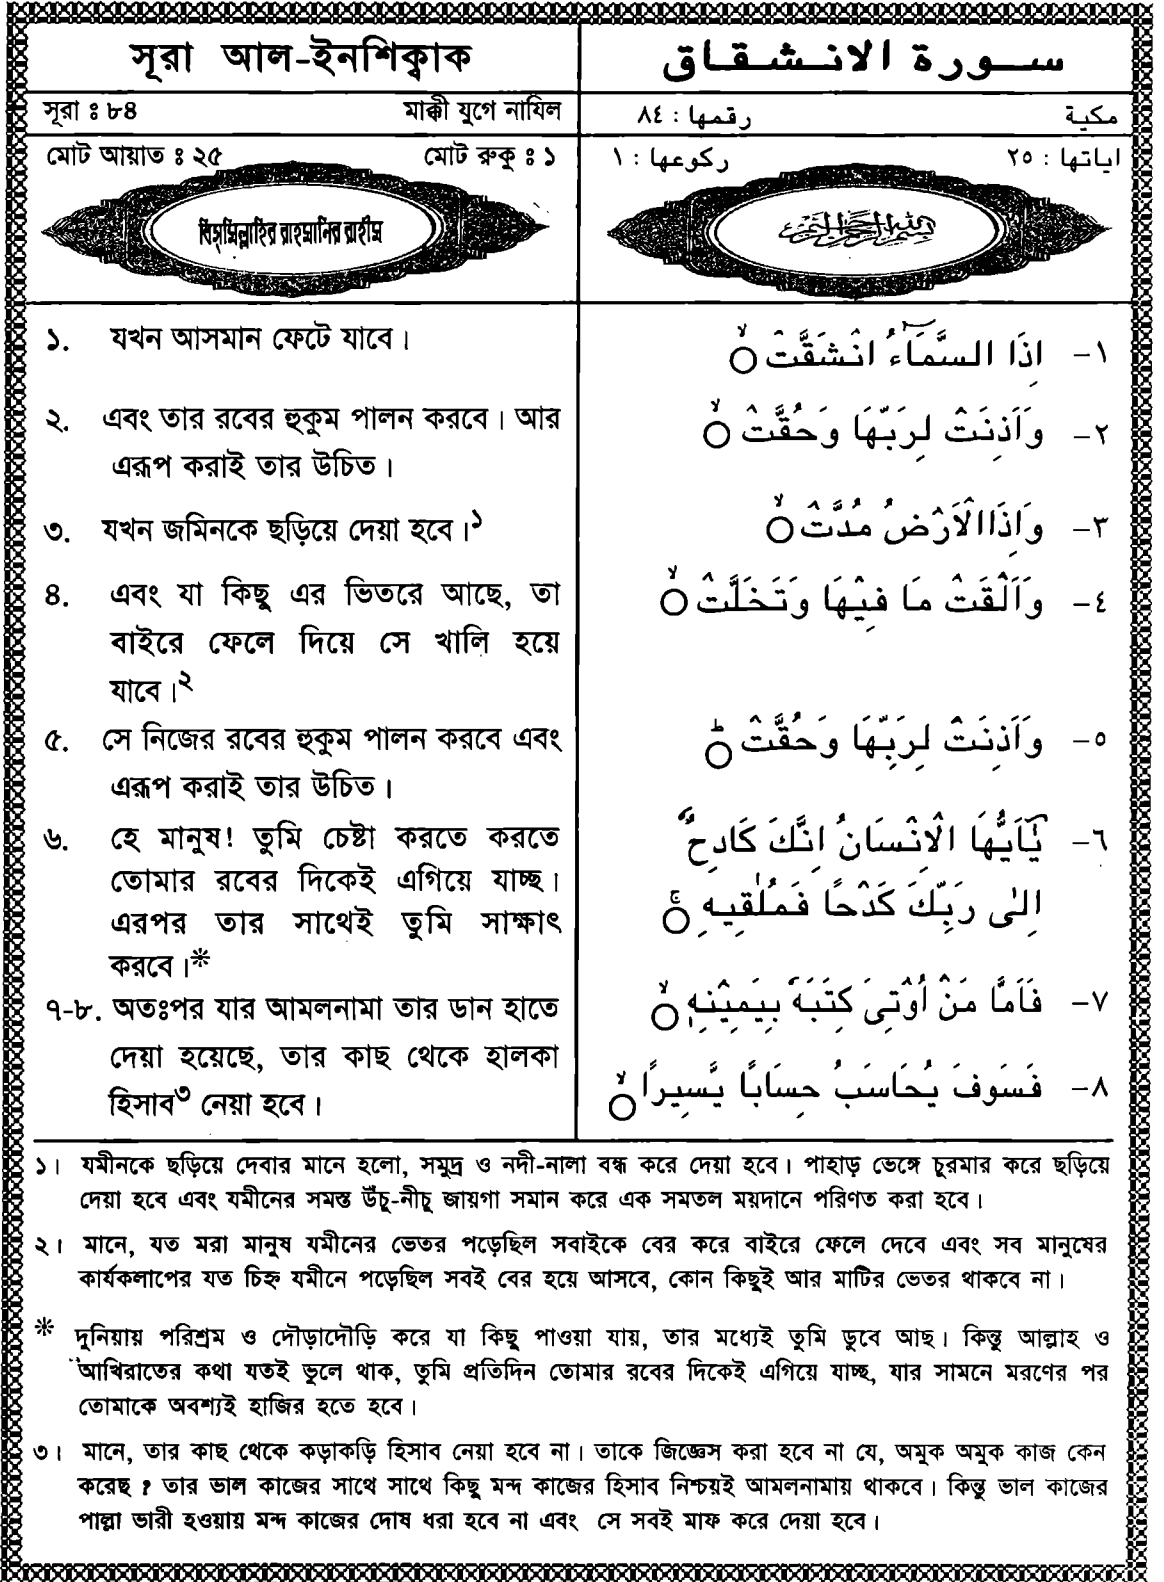 সূরা আল-ইনশিক্বাক
سورة الانشقاق
সূরা ঃ ৮৪ মাক্কী যুগে নাযিল
مكية رقمها : ٨٤
মোট আয়াত ঃ ২৫ মোট রুকু ঃ ১
اياتها : ٢٥ ركوعها : ١
বিস্‌মিল্লাহির রাহমানির রাহীম
بسم الله الرحمن الرحيم
১. যখন আসমান ফেটে যাবে।
২. এবং তার রবের হুকুম পালন করবে। আর
এরূপ করাই তার উচিত।
৩. যখন জমিনকে ছড়িয়ে দেয়া হবে।১
৪. এবং যা কিছু এর ভিতরে আছে, তা
বাইরে ফেলে দিয়ে সে খালি হয়ে
যাবে।২
৫. সে নিজের রবের হুকুম পালন করবে এবং
এরূপ করাই তার উচিত।
৬. হে মানুষ! তুমি চেষ্টা করতে করতে
তোমার রবের দিকেই এগিয়ে যাচ্ছ।
এরপর তার সাথেই তুমি সাক্ষাৎ
করবে।*
৭-৮. অতঃপর যার আমলনামা তার ডান হাতে
দেয়া হয়েছে, তার কাছ থেকে হালকা
হিসাব৩ নেয়া হবে।
١- اِذَا السَّمَآءُ انْشَقَّتْ ۙ
٢- وَاَذِنَتْ لِرَبِّهَا وَحُقَّتْ ۙ
٣- وَاِذَا الْاَرْضُ مُدَّتْ ۙ
٤- وَاَلْقَتْ مَا فِيْهَا وَتَخَلَّتْ ۙ
٥- وَاَذِنَتْ لِرَبِّهَا وَحُقَّتْ ؕ
٦- يٰۤاَيُّهَا الْاِنْسَانُ اِنَّكَ كَادِحٌ
اِلٰى رَبِّكَ كَدْحًا فَمُلٰقِيْهِ ۚ
٧- فَاَمَّا مَنْ اُوْتِىَ كِتٰبَهٗ بِيَمِيْنِهٖ ۙ
٨- فَسَوفَ يُحَاسَبُ حِسَابًا يَّسِيرًا ۙ
১। যমীনকে ছড়িয়ে দেবার মানে হলো, সমুদ্র ও নদী-নালা বন্ধ করে দেয়া হবে। পাহাড় ভেঙ্গে চুরমার করে ছড়িয়ে
দেয়া হবে এবং যমীনের সমস্ত উঁচু-নীচু জায়গা সমান করে এক সমতল ময়দানে পরিণত করা হবে।
২। মানে, যত মরা মানুষ যমীনের ভেতর পড়েছিল সবাইকে বের করে বাইরে ফেলে দেবে এবং সব মানুষের
কার্যকলাপের যত চিহ্ন যমীনে পড়েছিল সবই বের হয়ে আসবে, কোন কিছুই আর মাটির ভেতর থাকবে না।
* দুনিয়ায় পরিশ্রম ও দৌড়াদৌড়ি করে যা কিছু পাওয়া যায়, তার মধ্যেই তুমি ডুবে আছ। কিন্তু আল্লাহ ও
আখিরাতের কথা যতই ভুলে থাক, তুমি প্রতিদিন তোমার রবের দিকেই এগিয়ে যাচ্ছ, যার সামনে মরণের পর
তোমাকে অবশ্যই হাজির হতে হবে।
৩। মানে, তার কাছ থেকে কড়াকড়ি হিসাব নেয়া হবে না। তাকে জিজ্ঞেস করা হবে না যে, অমুক অমুক কাজ কেন
করেছ ? তার ভাল কাজের সাথে সাথে কিছু মন্দ কাজের হিসাব নিশ্চয়ই আমলনামায় থাকবে। কিন্তু ভাল কাজের
পাল্লা ভারী হওয়ায় মন্দ কাজের দোষ ধরা হবে না এবং সে সবই মাফ করে দেয়া হবে।